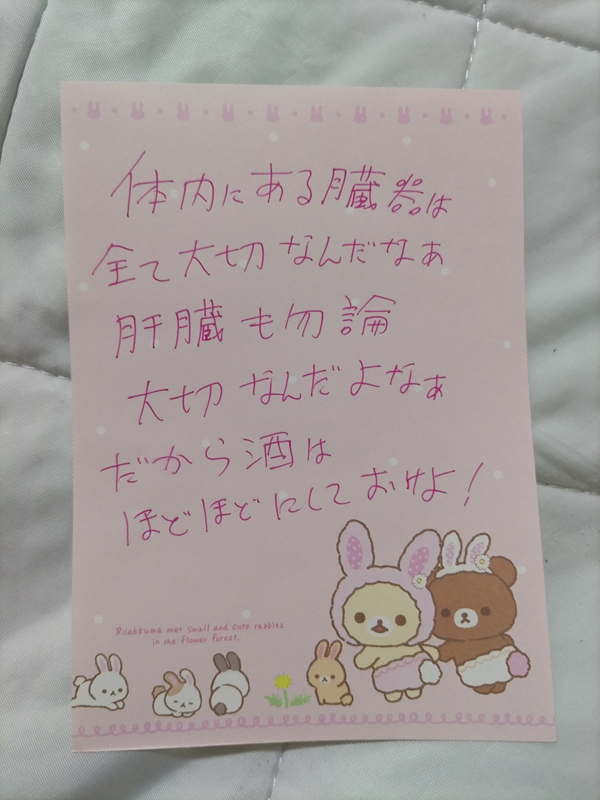 体内にある臓器は
全て大切なんだなぁ
肝臓も勿論
大切なんだよなぁ
だから酒は
ほどほどにしておけよ!
Rilakkuma met small and cute rabbits
in the flower forest.